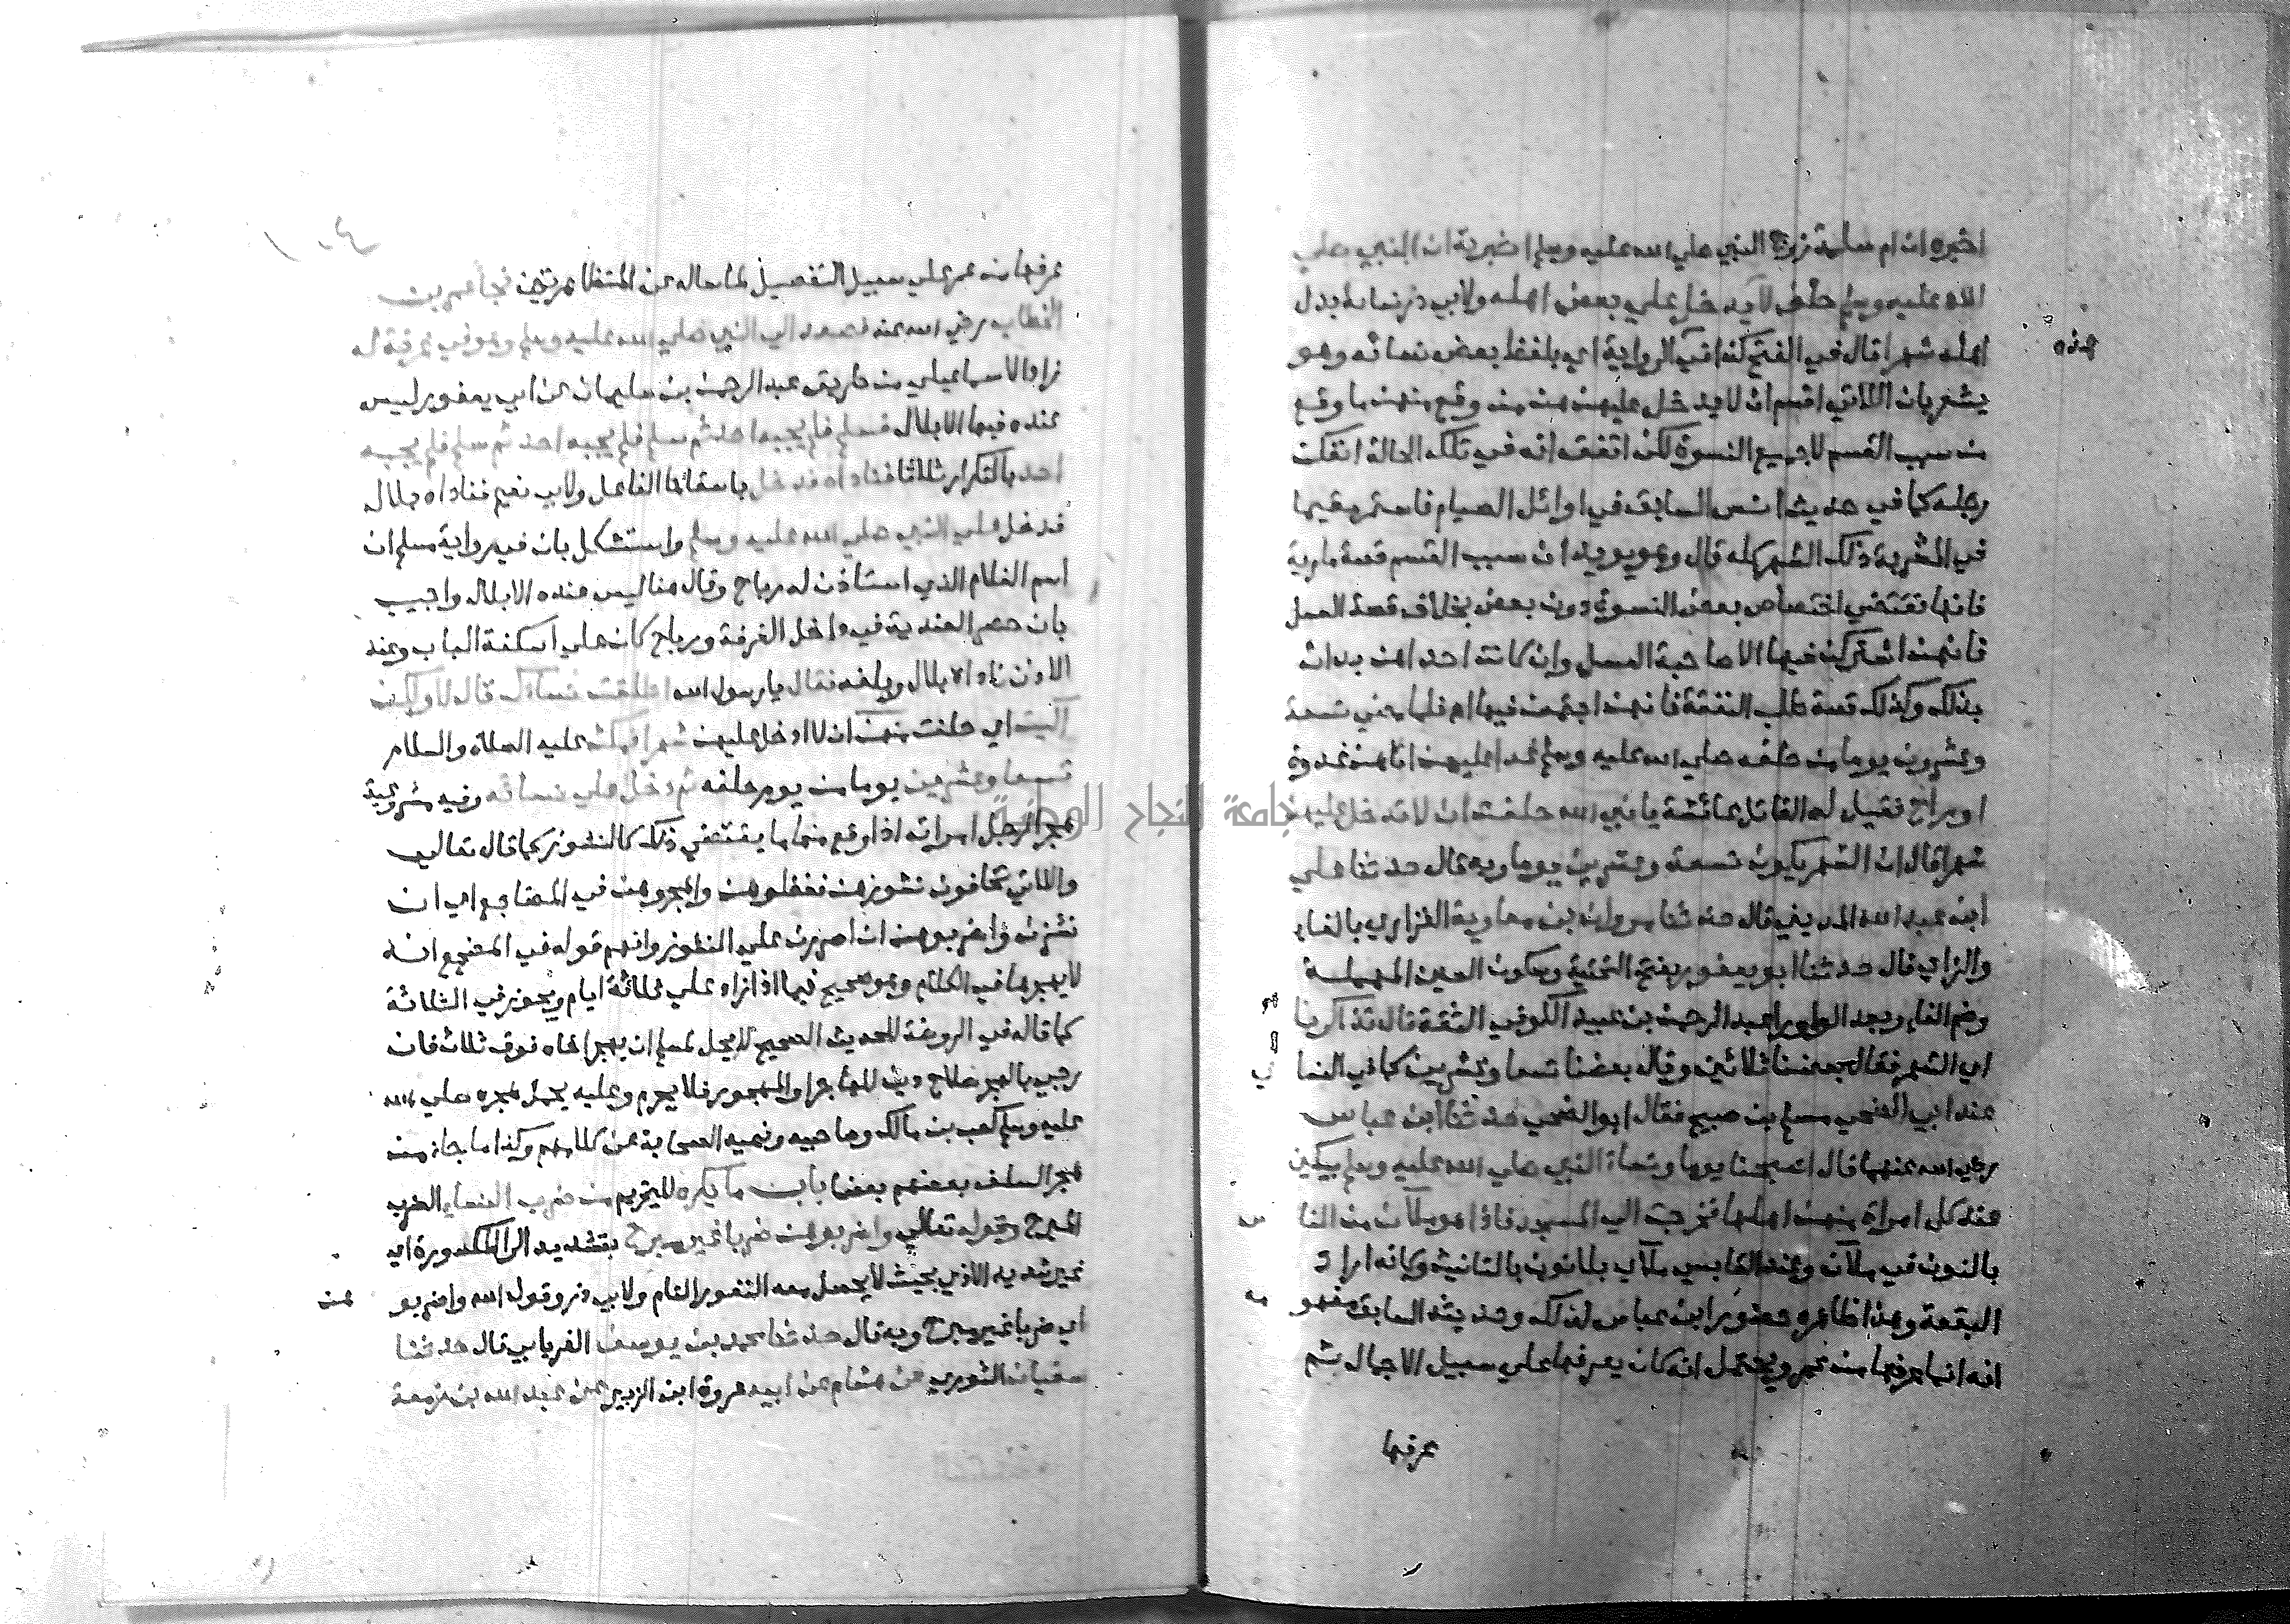 اخبره ان ام سلمة زوج النبي صلي الله عليه وسلم اخبرته ان النبي صلي
الله عليه وسلم حلف لا يدخل علي بعض اهله ولابي ذر نسايه بدل
اهله شهرا قال في الفتح كذا في الرواية اي بلفظ بعض نسائه وهو
هذه
يشعر بان اللاتي اقسم ان لا يدخل عليهن هن من وقع منهن ما وقع
من سبب القسم لا جميع النسوة لكن اتفق انه في تلك الحالة انفكت
رجله كما في حديث انس السابق في اوائل الصيام فاستمر مقيما
في المشربة ذلك الشهر كله قال وهو يويد ان سبب القسم قصة مارية
فانها تقتضي اختصاص بعض النسوة دون بعض بخلاف قصة العسل
فانهن اشتركن فيها الا صاحبة العسل وان كانت احداهن بدات
بذلك وكذلك قصة طلب النفقة فانهن اجتمعن فيها اه فلما مضي تسعة
وعشرون يوما من حلفه صلي الله عليه وسلم غدا عليهن اتاهن غدوة
او راح فقيل له القائل عائشة يا نبي الله حلفت ان لا تدخل عليهن
شهرا قال ان الشهر يكون تسعة وعشرين يوما وبه قال حدثنا علي
ابن عبد الله المديني قال حدثنا مروان بن معاوية الفزاري بالفاء
والزاي قال حدثنا ابو يعفور بفتح التحتية وسكون العين المهملة
وضم الفاء وبعد الواو را عبد الرحمن بن عبيد الكوفي الثقة قال تذاكرنا
اي الشهر فقال بعضنا ثلاثين وقال بعضنا تسعا وعشرين كما في النسا
ي
عند ابي الضحي مسلم بن صبيح فقال ابو الضحي حدثنا ابن عباس
رضي الله عنهما قال اصبحنا يوما ونساء النبي صلي الله عليه وسلم يبكين
عند كل امراة منهن اهلها فخرجت الي المسجد فاذا هو ملآن من النا
س
بالنون في ملآن وعند القابسي ملآي بلا نون بالتانيث وكانه اراد
البقعة وهذا ظاهره حضور ابن عباس لذلك وحديثه السابق مفهو
مه
انه انما عرفها من عمر ويحتمل انه كان يعرفها علي سبيل الاجمال ثم
عرفها
عرفها من عمر علي سبيل التفصيل لما ساله عن المتظاهرتين فجا عمر بن
الخطاب رضي الله عنه فصعد الي النبي صلي الله عليه وسلم وهو في غرفة له
زاد الاسماعيلي من طريق عبد الرحمن بن سليمان عن ابي يعفور ليس
عنده فيها الا بلال فسلم فلم يجبه احد ثم سلم فلم يجبه احد ثم سلم فلم يجبه
احد بالتكرار ثلاثا فناداه فدخل باسقاط الفاعل ولابي نعيم فناداه بلال
فدخل علي النبي صلي الله عليه وسلم واستشكل بان في رواية مسلم ان
اسم الغلام الذي استاذن له رباح وقال هنا ليس عنده الا بلال واجيب
بان حصر العندية في داخل الغرفة ورباح كان علي اسكفة الباب وعند
الاذن ناداه بلال وبلغه فقال يا رسول الله اطلقت نساءك قال لا ولكن
آليت اي حلفت منهن ان لا ادخل عليهن شهرا فمكث عليه الصلاة والسلام
تسعا وعشرين يوما من يوم حلفه ثم دخل علي نسائه وفيه مشروعية
هجر الرجل امراته اذا وقع منها ما يقتضي ذلك كالنشوز كما قال تعالي
واللاتي تخافون نشوزهن فعظوهن واهجروهن في المضاجع اي ان
نشزن واضربوهن ان اصررن علي النشوز وافهم قوله في المضجع انه
لا يهجرها في الكلام وهو صحيح فيما اذا زاد علي ثلاثة ايام ويجوز في الثلاثة
كما قاله في الروضة للحديث الصحيح لا يحل لمسلم ان يهجر اخاه فوق ثلاث فان
رجي بالهجر صلاح دين للهاجر او المهجور فلا يحرم وعليه يحمل هجره صلي الله
عليه وسلم كعب بن مالك وصاحبيه ونهيه الصحابة عن كلامهم وكذا ما جاء من
هجر السلف بعضهم بعضا باب ما يكره للتحريم من ضرب النساء الضرب
المبرح وقوله تعالي واضربوهن ضربا غير مبرح بتشديد الرا المكسورة اي
غير شديد الاذي بحيث لا يحصل معه النفور التام ولابي ذر وقول الله واضربو
هن
اي ضربا غير مبرح وبه قال حدثنا محمد بن يوسف الفريابي قال حدثنا
سفيان الثوري عن هشام عن ابيه عروة ابن الزبير عن عبد الله بن زمعة
جامعة النجاح الوطنية